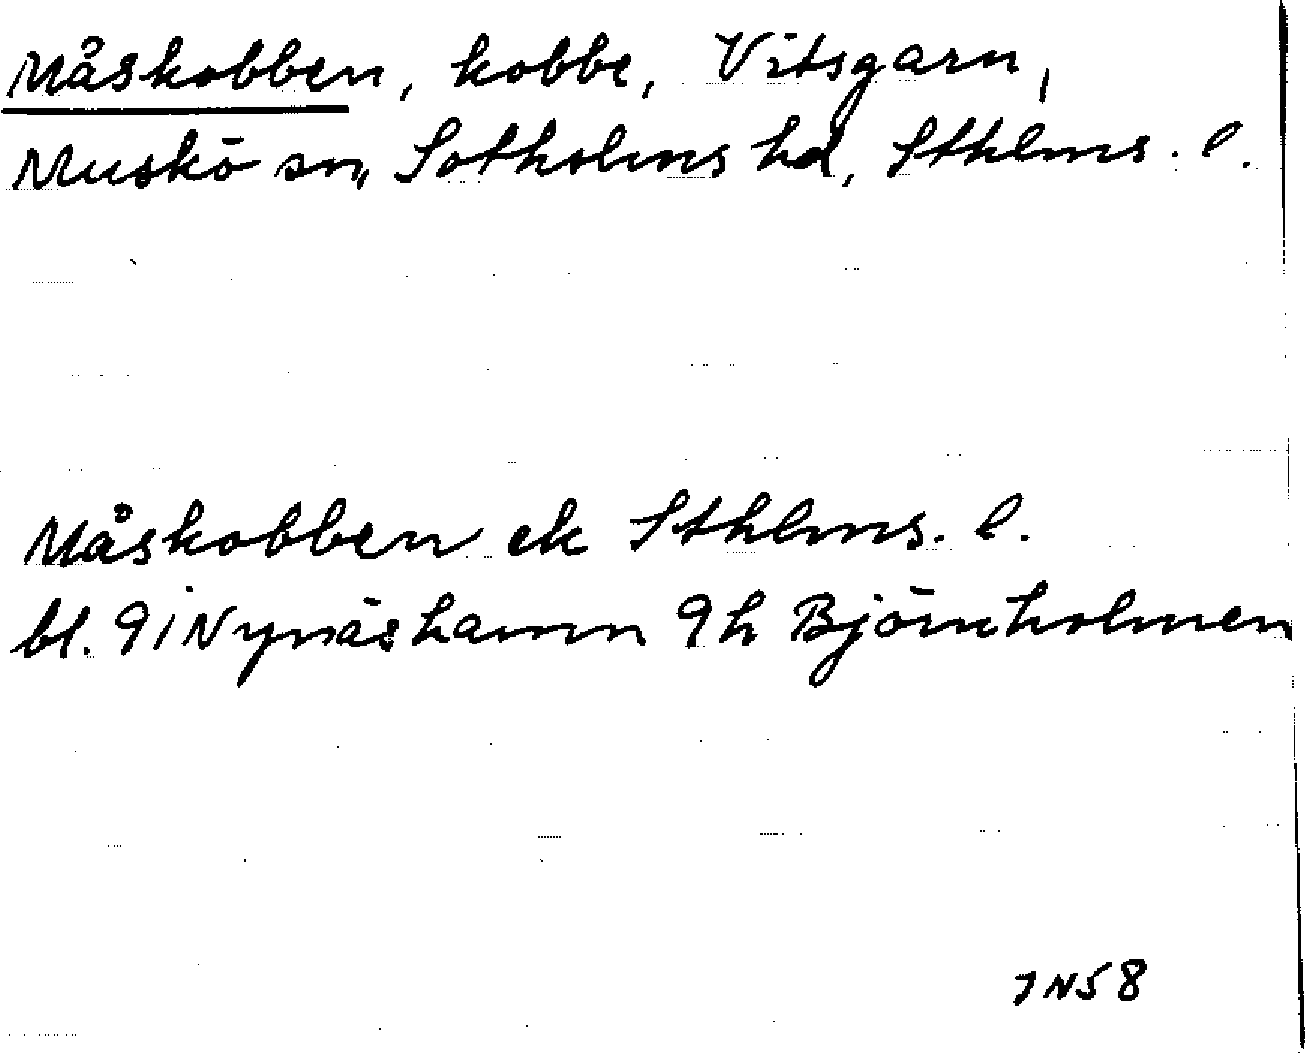 Måskobben, kobbe, Vitsgarn,
Muskö sn, Sotholms hd, Sthlms. l.
Måskobben ek Sthlms. l.
bl. 9i Nynäshamn 9h Björnholmen
JN58